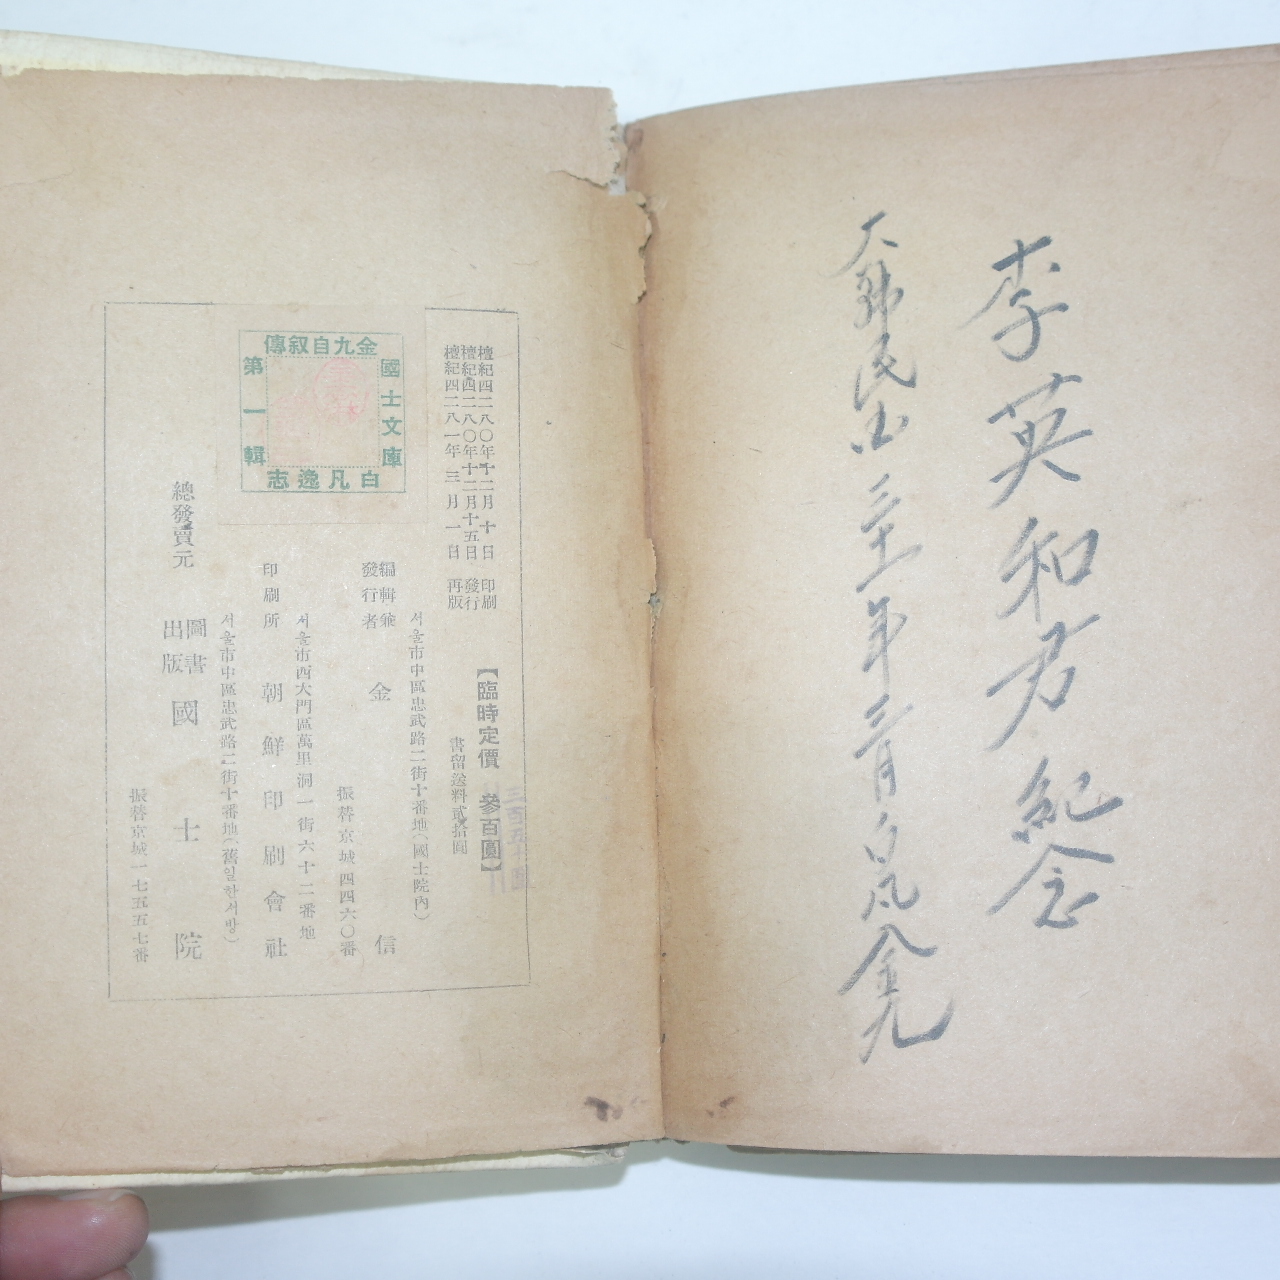 李英和君 紀念
大韓民国 三十一年 三月 白凡 金九
檀紀四二八〇年十二月十日 印刷
檀紀四二八〇年十二月十五日 發行
檀紀四二八一年三月一日 再版
【臨時定價 參百圓】
書留送料貳拾圓
서울市中區忠武路二街十番地(國士院內)
編輯兼
發行者 金信
振替京城四四六〇番
서울市西大門區萬里洞一街六十二番地
印刷所 朝鮮印刷會社
서울市中區忠武路二街十番地(舊일한서방)
總發賣元 圖書
出版 國士院
振替京城一七五五七番
金九自叙傳
國士文庫
第一輯
白凡逸志